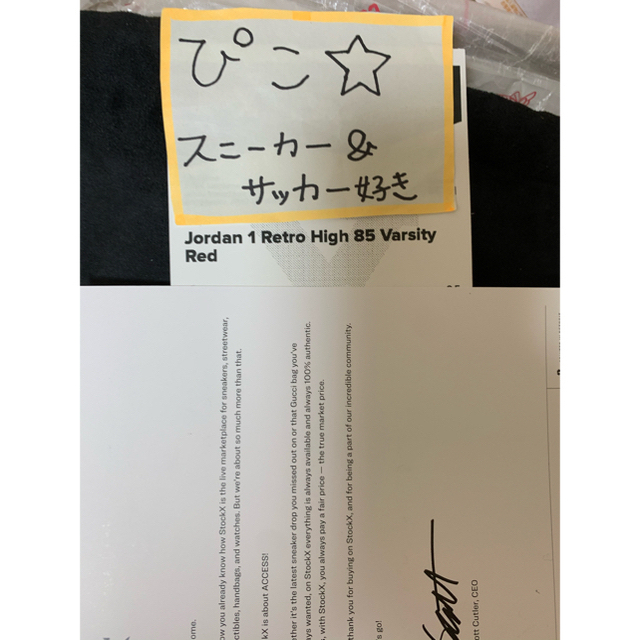 ぴこ☆
スニーカー&
サッカー好き
Jordan 1 Retro High 85 Varsity
Red
ome.
ow you already know how StockX is the live marketplace for sneakers, streetwear,
ctibles, handbags, and watches. But we're about so much more than that.
ckX is about ACCESS!
ther it's the latest sneaker drop you missed out on or that Gucci bag you've
ys wanted, on StockX everything is always available and always 100% authentic.
, with StockX, you always pay a fair price — the true market price.
thank you for buying on StockX, and for being a part of our incredible community.
's go!
Scott
ott Cutler, CEO